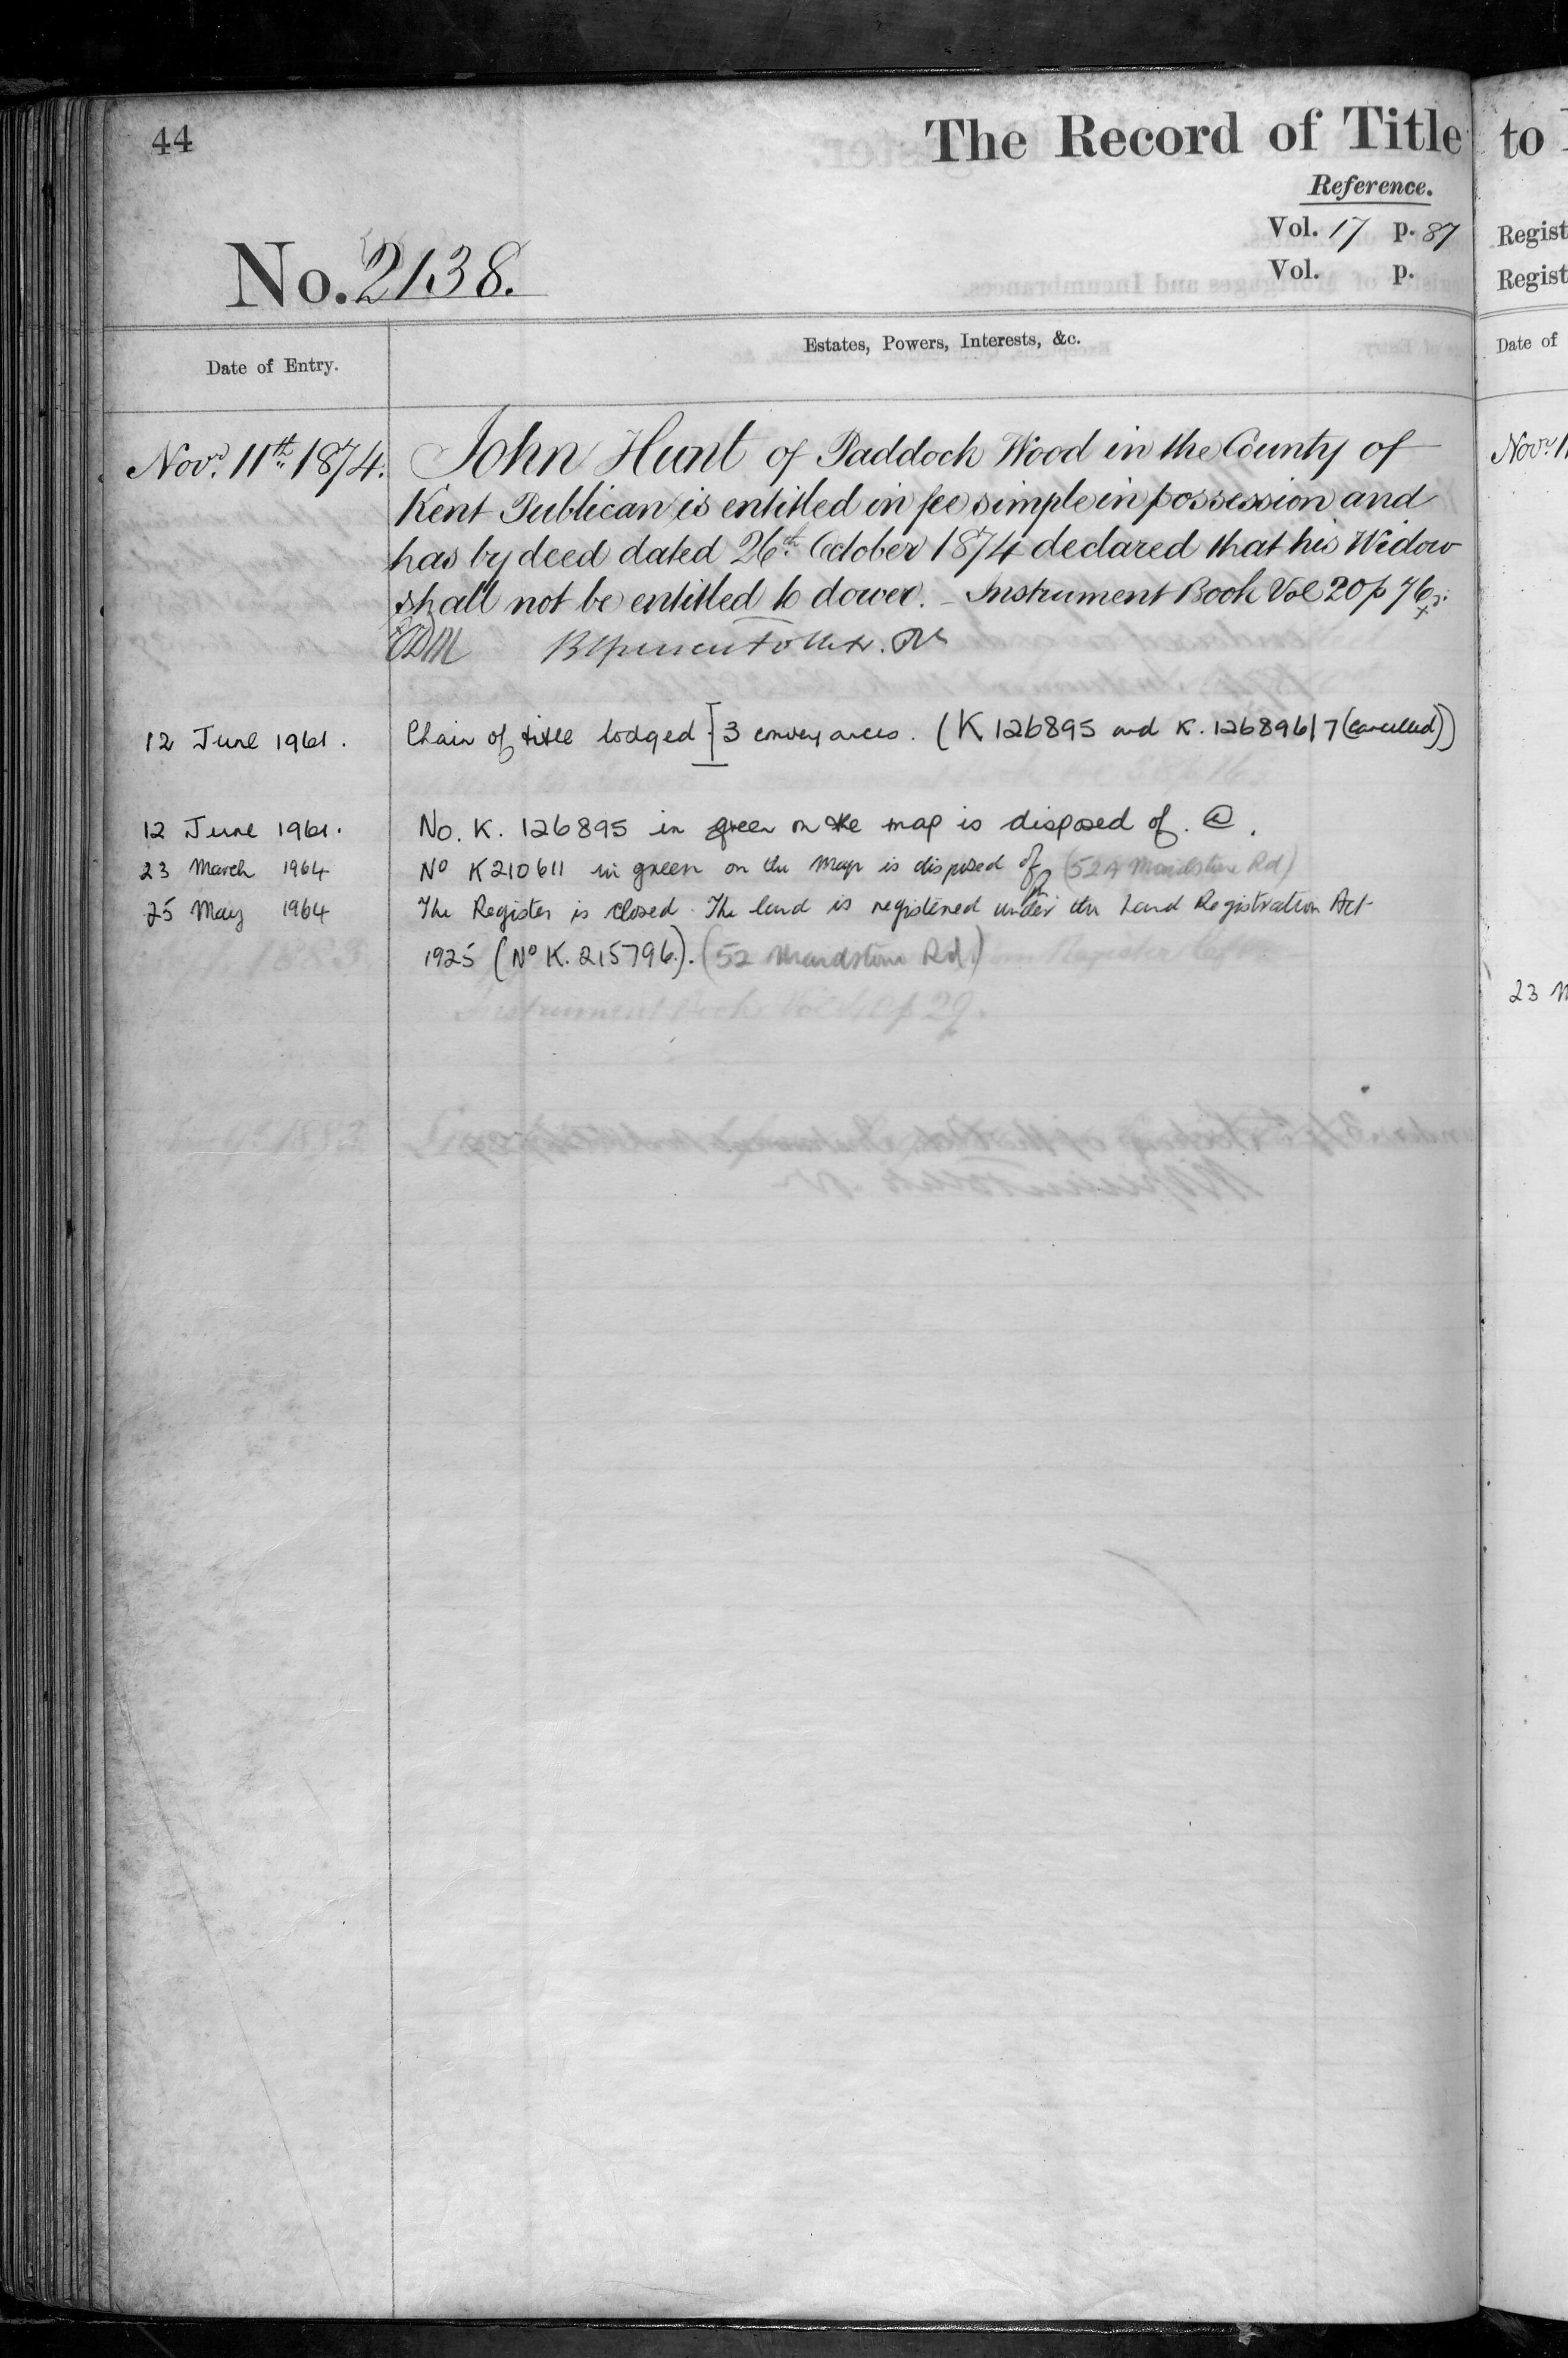 44
The Record of Title to
Reference.
Vol. 17 p. 87
Regist
Vol. p.
Regist
No. 2138.
Date of Entry.
Estates, Powers, Interests, &c.
Date of
Nov.r 11th. 1874. John Hunt of Paddock Wood in the County of
Nov.r 1
Kent Publican is entitled in fee simple in possession and
has by deed dated 26th. October 1874 declared that his Widow
shall not be entitled to dower. – Instrument Book Vol 20 p 76
12 June 1961. Chain of title lodged 3 conveyances. (K 126895 and K. 126896/7 (cancelled))
12 June 1961. No. K. 126895 in green on the map is disposed of.
23 March 1964 No K210611 in green on the map is disposed of (52A Maidstone Rd)
25 May 1964 The Register is closed. The land is registered under the Land Registration Act
1925 (No K. 215796.). (52 Maidstone Rd.)
23 M